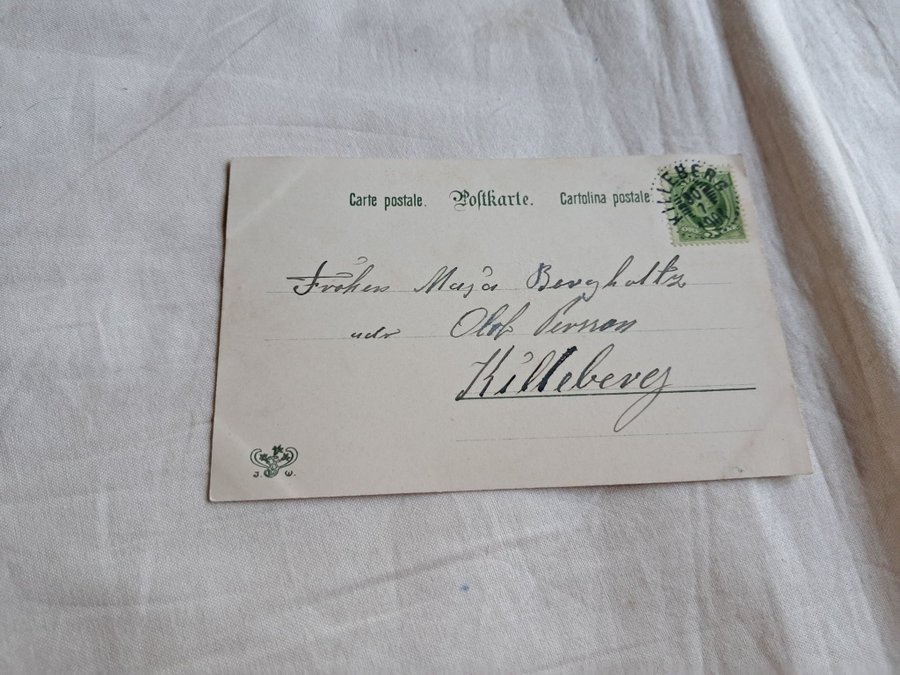 Carte postale. Postkarte. Cartolina postale.
KILLEBERG
30
1
Fröken Maja Bergholtz
adr Olof Persson
Killeberg
J. W.